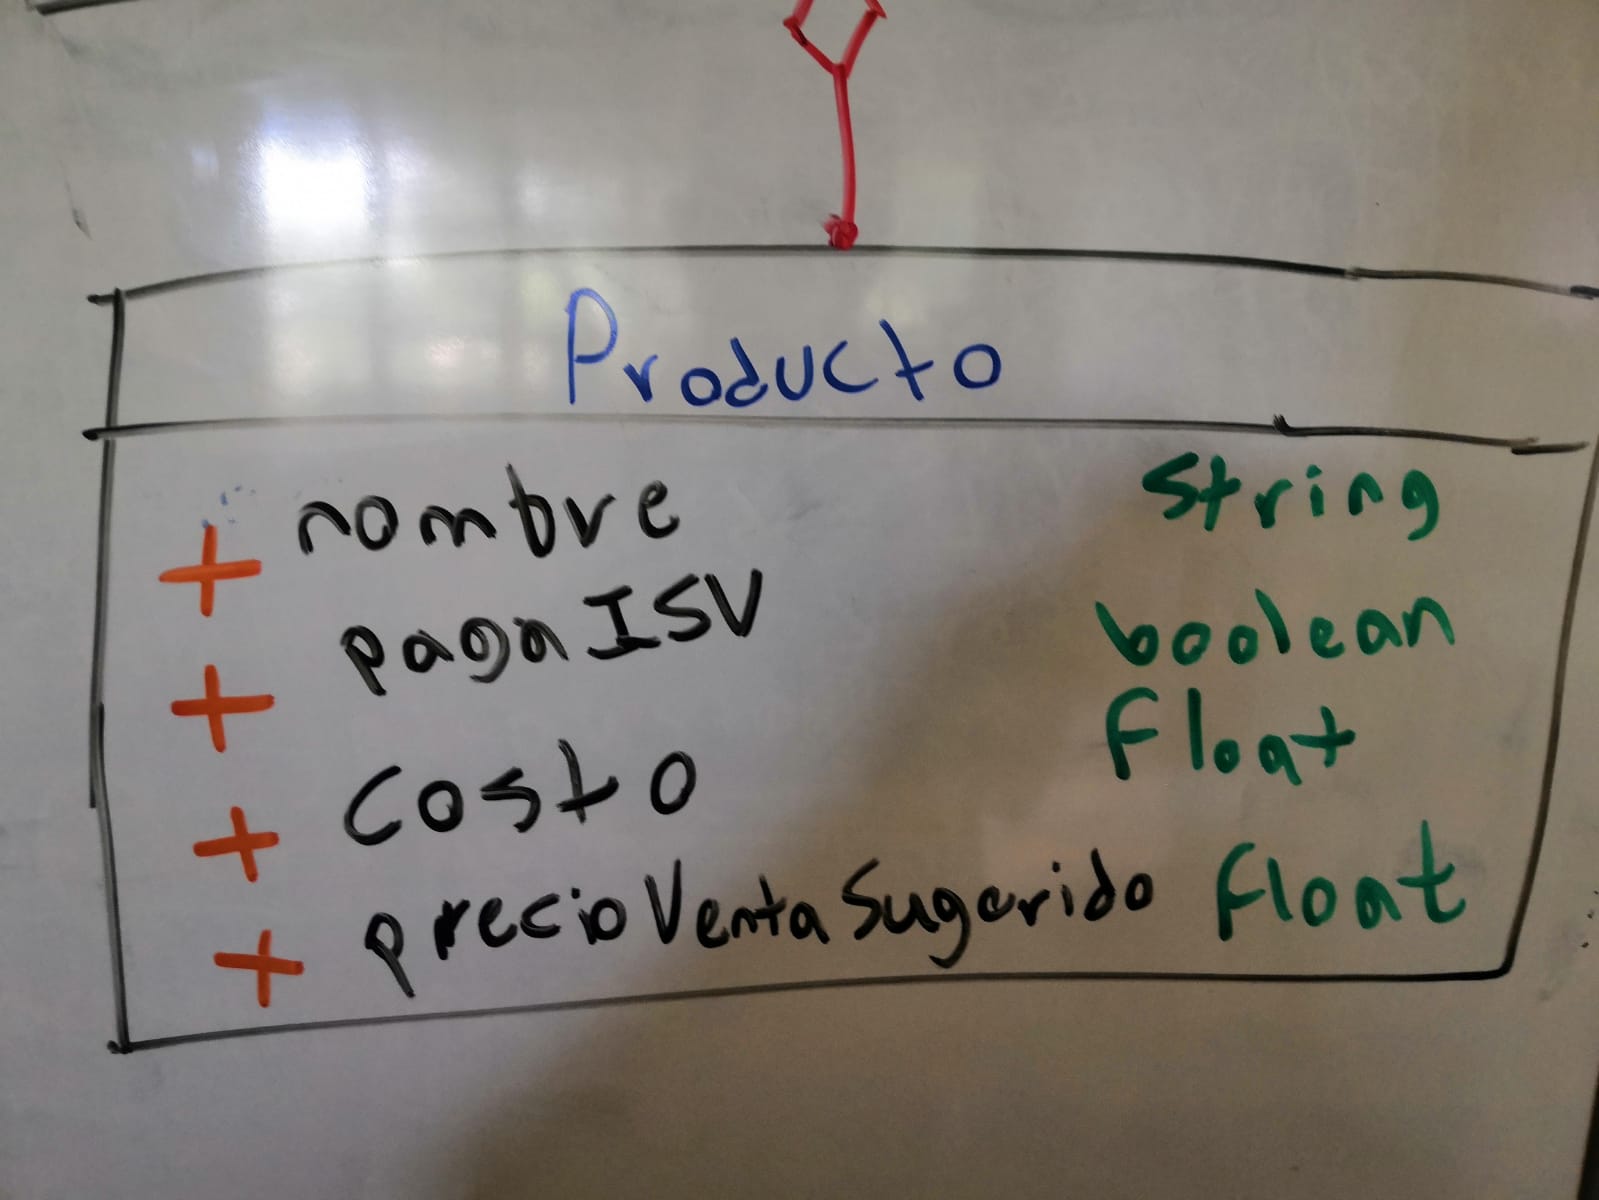 Producto
+ nombre String
+ pagaISV boolean
+ Costo Float
+ precioVentaSugerido Float